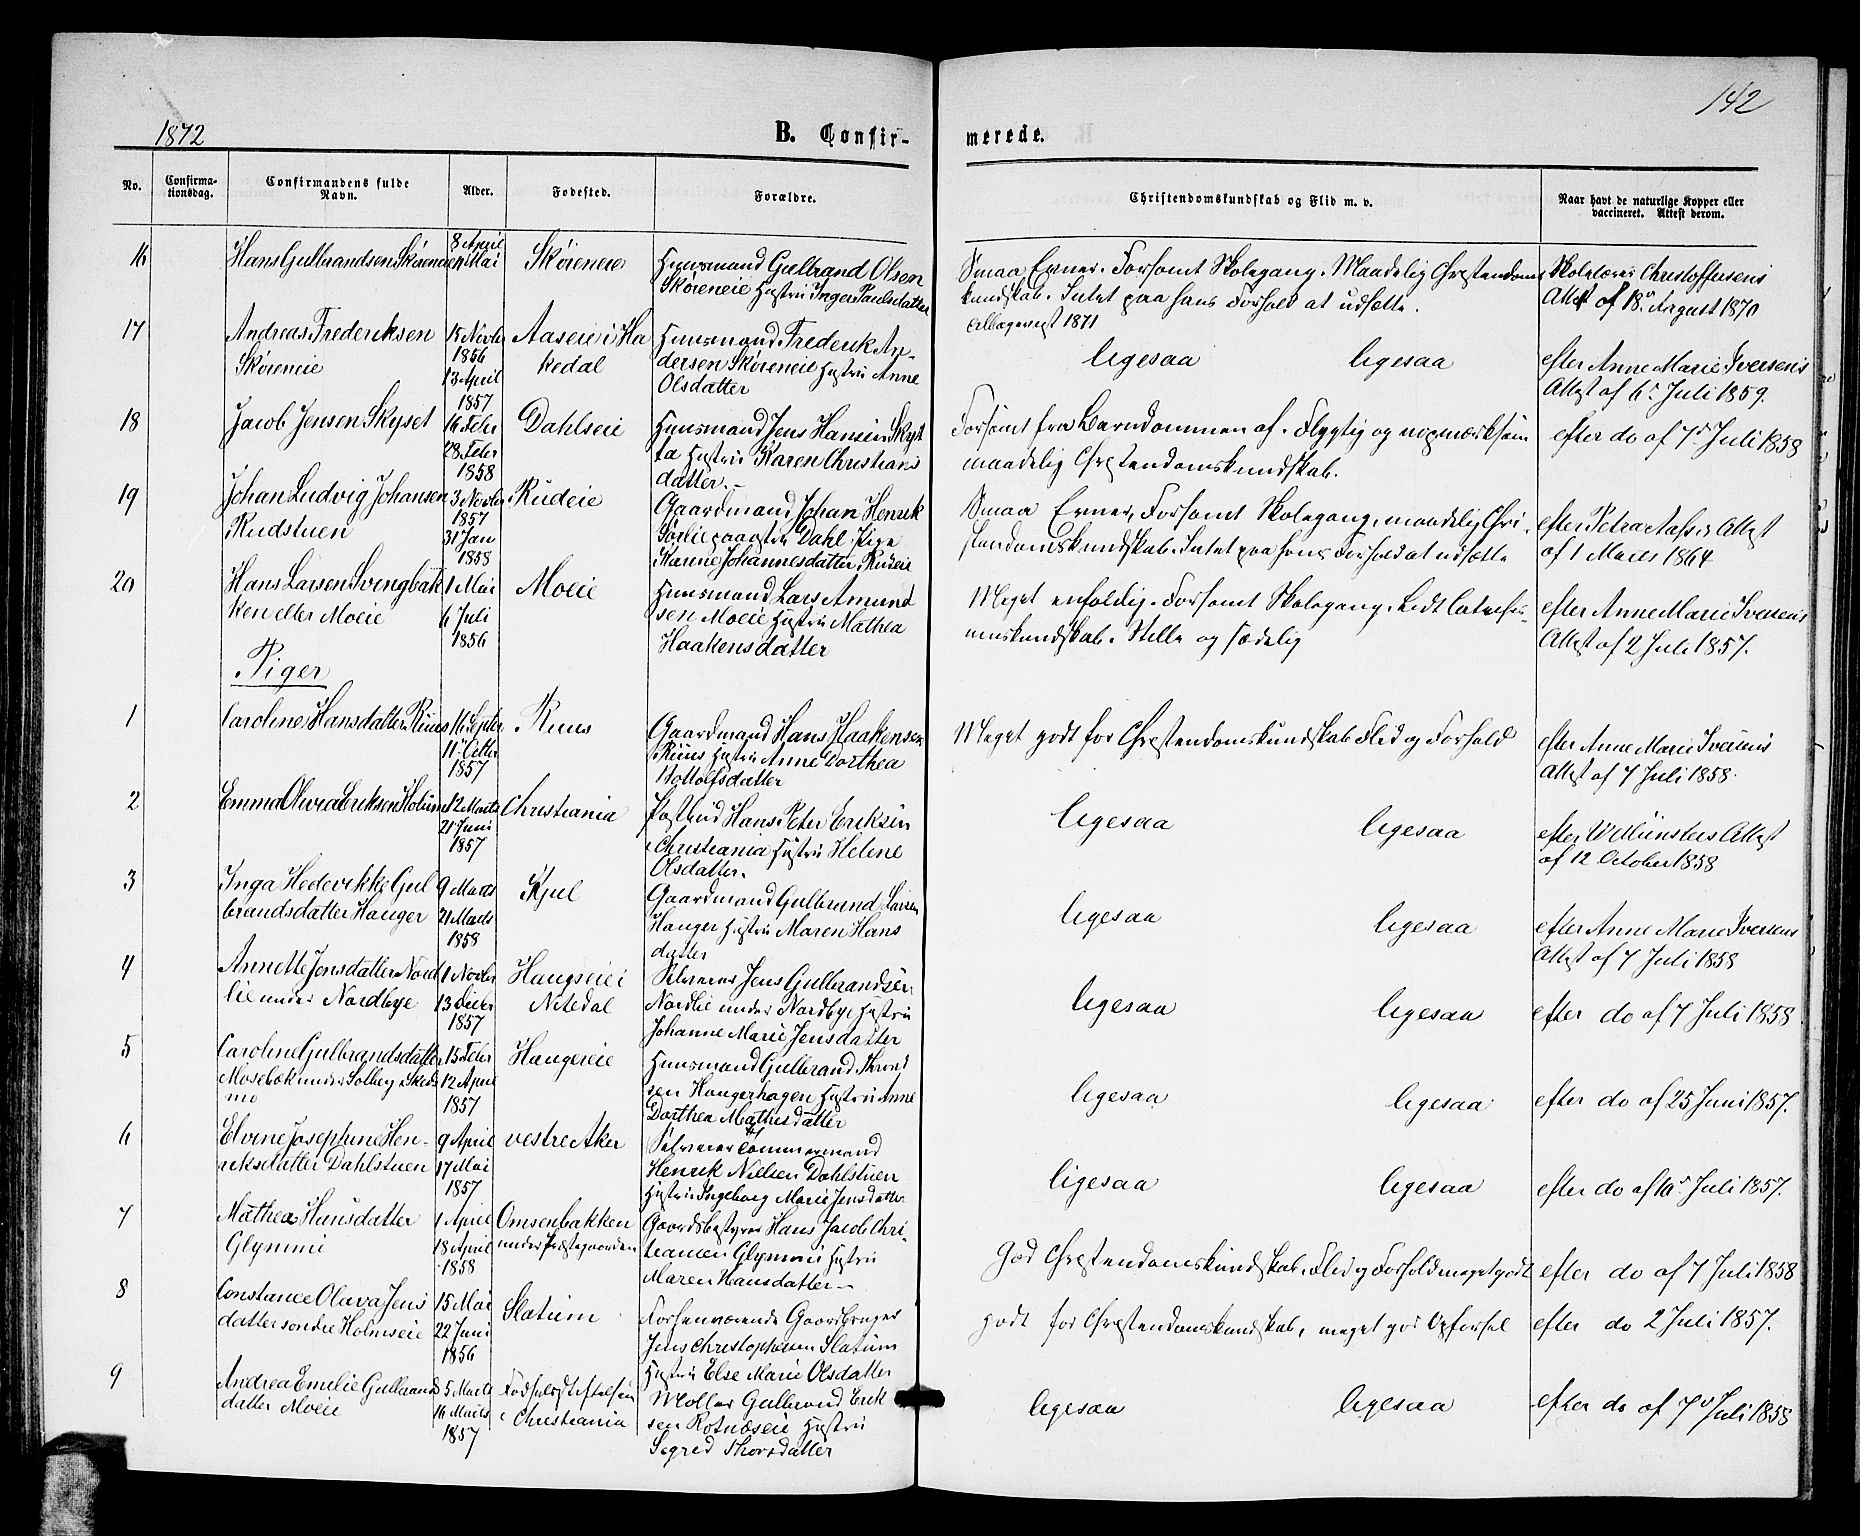 142
1872
B. Confir-
merede.
No.
Confirma-
tionsdag.
Confirmandens fulde
Navn.
Alder.
Fødested.
Forældre.
Christendomskundskab og Flid m. v.
Naar havt de naturlige Kopper eller
vaccineret. Attest derom.
16
Hans Gulbrandsen Skøreneie
8 April
Mai
Skøreneie
Huusmand Gulbrand Olsen
Skøreneie Hustru Inger Paulsdatter
Smaa Evner. Forsømt Skolegang. Maadelig Christendoms
kundskab. Intet paa hans Forhold at udsætte.
1871
Skolelærer Christoffersens
Attest af 18. August 1870
17
Andreas Frederiksen
Skøreneie
15 Novbr
1856
13 April
1857
Aaseie i Ha
kedal
Huusmand Frederik An-
dersen Skøreneie Hustru Anne
Olsdatter
ligesaa
ligesaa
efter Anne Marie Iversens
Attest af 6 Juli 1859.
18
Jacob Jensen Skyset
16 Febr
28 Febr
1858
Dahlseie
Huusmand Jens Hansen Skyt
ta Hustru Karen Christians
datter.
Forsømt fra Barndommen af. Flygtig og uopmærksom
maadelig Christendomskundskab.
efter do af 7 Juli 1858
19
Johan Ludvig Johansen
Rudstuen
3 Novbr
1857
31 Jan
1858
Rudeie
Gaardmand Johan Henrik
Dahl Pige
Karine Johannesdatter Rudeie
Smaa Evner, Forsømt Skolegang, maadelig Chri-
stendomskundskab. Intet paa hans Forhold at udsætte
efter Petra Aas's Attest
af 1 Marts 1864
20
Hans Larsen Svingbak
ken eller Moeie
1 Mai
6 Juli
1856
Moeie
Huusmand Lars Amund
sen Moeie Hustru Mathea
Haakensdatter
Meget enfoldig. Forsømt Skolegang. Lidt Catechis-
muskundskab. Stille og sædelig
efter Anne Marie Iversens
Attest af 2 Juli 1857.
Piger
1
Caroline Hansdatter Ruus
16 Septbr
11 Octbr
1857
Ruus
Gaardmand Hans Haakensen
Ruus Hustru Anne Dorthea
Bottolfsdatter
Meget godt for Christendomskundskab Flid og Forhold
efter Anne Marie Iversens
Attest af 7 Juli 1858.
2
Emma Olivia Eriksen Holum
12 Marts
21 Juni
1857
Christiania
Postbud Hans Peter Eriksen
Christiania Hustru Helene
Olsdatter.
ligesaa
ligesaa
efter Münsters Attest
af 12 October 1858
3
Inga Hedevikke Gul
brandsdatter Hauger
9 Marts
21 Marts
1858
Kjul
Gaardmand Gulbrand Larsen
Hauger Hustru Maren Hans
datter
ligesaa
ligesaa
efter Anne Marie Iversens
Attest af 7 Juli 1858
4
Annette Jensdatter Nord
lie under Nordbye
1 Novbr
13 Decbr
1857
Haugseie i
Nitedal
Selveier Jens Gulbrandsen
Nordlie under Nordbye Hustru
Johanne Marie Jensdatter
ligesaa
ligesaa
efter do af 7 Juli 1858
5
Caroline Gulbrandsdatter
Mosebæk under Solberg i Skeds
mo
15 Febr
12 April
1857
Haugereie
Huusmand Gulbrand
sen Haugerhagen Hustru Anne
Dorthea Mathisdatter
ligesaa
ligesaa
efter do af 25 Juni 1857.
6
Elvine Josephine Hen-
riksdatter Dahlstuen
9 April
17 Mai
1857
vestre Aker
Selveier Tømmermand
Henrik Nielsen Dahlstuen
Hustru Ingeborg Marie Jensdatter
ligesaa
ligesaa
efter do af 10 Juli 1857.
7
Mathea Hansdatter
Glymmi
1 April
18 April
1858
Omsenbakken
under Præstegaarden
Gaardsbestyrer Hans Jacob Chri-
stiansen Glymmi Hustru
Maren Hansdatter
God Christendomskundskab. Flid og Forhold meget godt
efter do af 7 Juli 1858
8
Constance Olava Jens
datter søndre Holmseie
15 Mai
22 Juni
1856
Slatum
Forhenværende Gaardbruger
Jens Christophersen Slatum
Hustru Else Marie Olsdatter
godt for Christendomskundskab, meget god Opførsel
efter do 2 Juli 1857.
9
Andrea Emilie Gulbrands
datter Moeie
5 Marts
16 Marts
1857
Fødselsstiftelsen
i Christiania
Møller Gulbrand Erik
sen Rotnæseie Hustru
Sigrid Thorsdatter
ligesaa
ligesaa
efter do af 7 Juli 1858